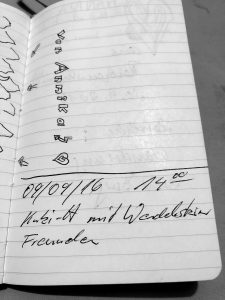 von Annika
09/09/16 14 00
mit Wendelsteiner
Freunden